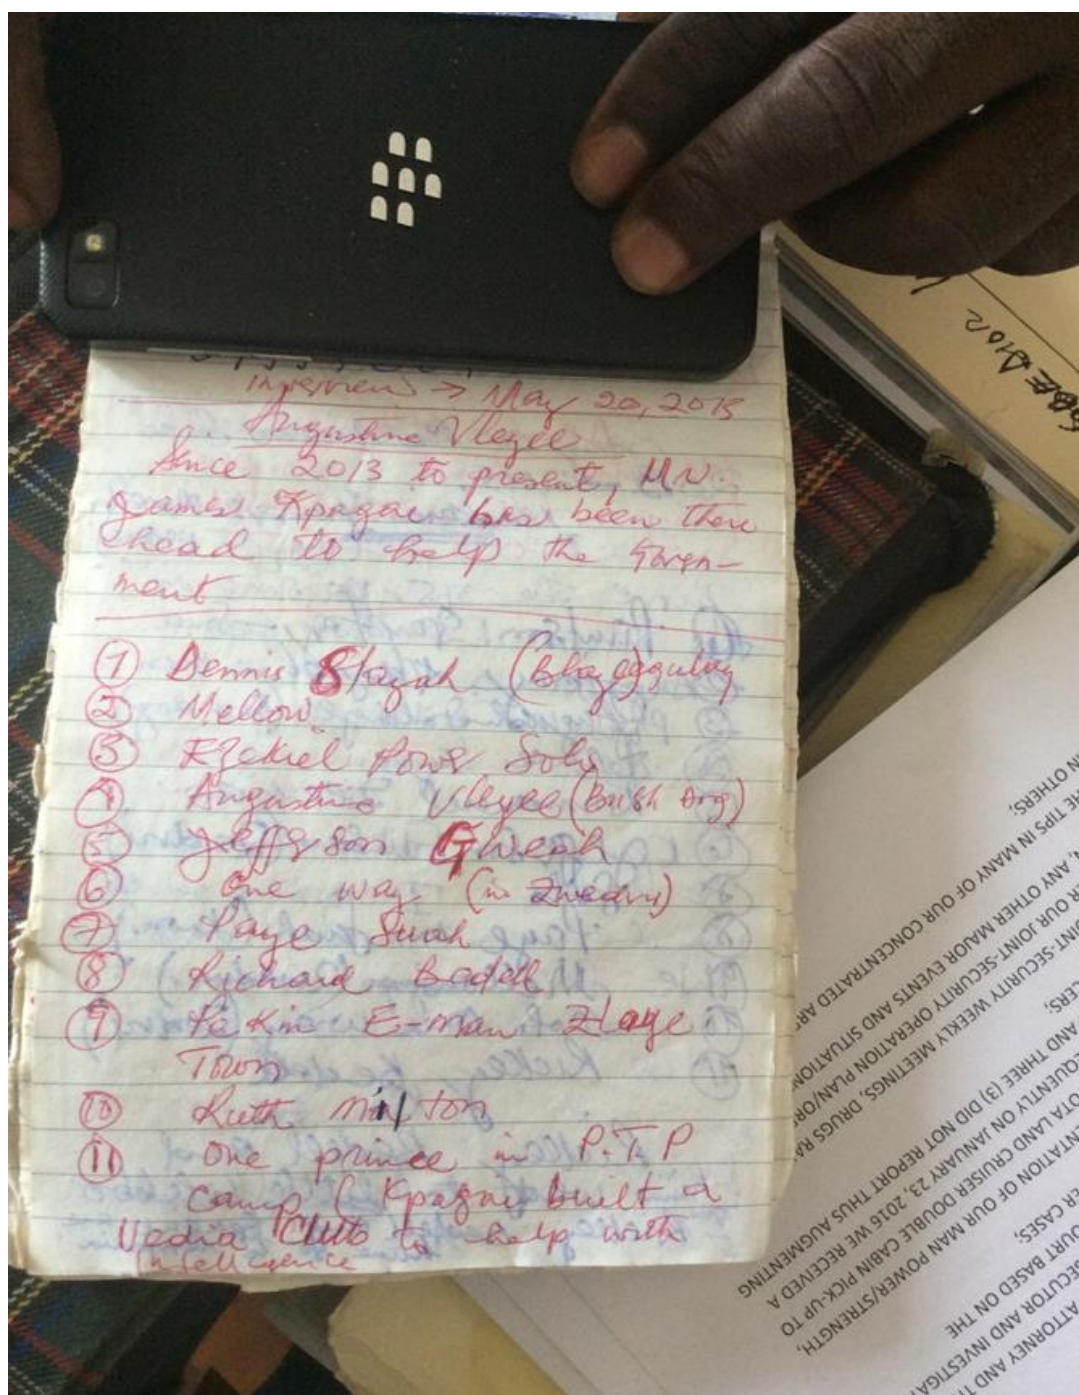 Interview → May 20, 2015
Augustine Vleyee
Since 2013 to present, UN.
James Kpagai has been there
head to help the Govern-
ment
① Dennis Slayah (
② Mellow
③ Ezekiel Power Solo
④ Augustine Vleyee (Bush Org)
⑤ Jefferson Gweah
⑥ One way (in Zwedru)
⑦ Paye Suah
⑧ Richard
⑨ E-man Zlaye
Town
⑩ Ruth Milton
⑪ One prince in P.T.P
camp (Kpagai built a
Vedia Club to help with
intelligence
N OTHERS;
HE TIPS IN MANY OF OUR CONCENTRATED AR
N, ANY OTHER MAJOR EVENTS AND SITUATION
R OUR JOINT-SECURITY OPERATION PLAN/OR
OINT-SECURITY WEEKLY MEETINGS, DRUGS RA
CERS;
AND THREE (3) DID NOT REPORT THUS AUGMENTING
EQUENTLY ON JANUARY 23, 2016 WE RECEIVED A
OTA LAND CRUISER DOUBLE CABIN PICK-UP TO
ENTATION OF OUR MAN POWER/STRENGTH,
ER CASES;
OURT BASED ON THE
SECUTOR AND INVESTIGAT
ATTORNEY AND